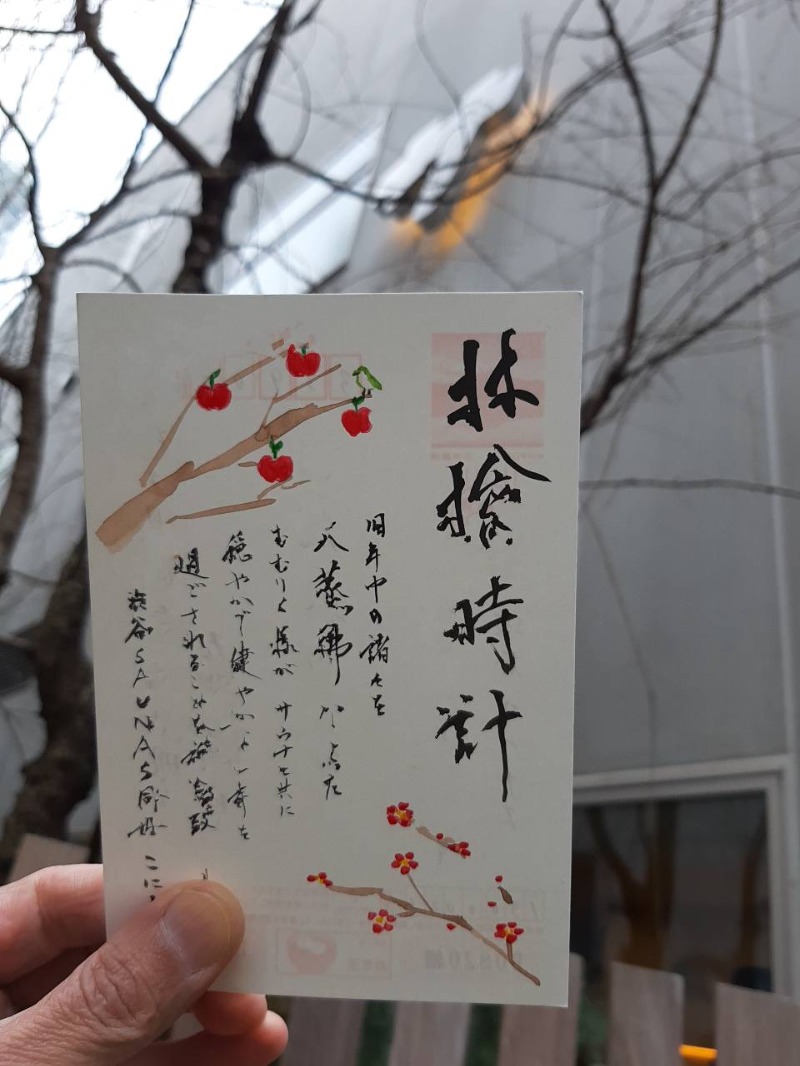 林檎時計
旧年中の諸々を
大蒸
むむりく様が サウナと共に
穏やかで健やかな一年を
過ごされることを祈念致
渋谷SAUNAS